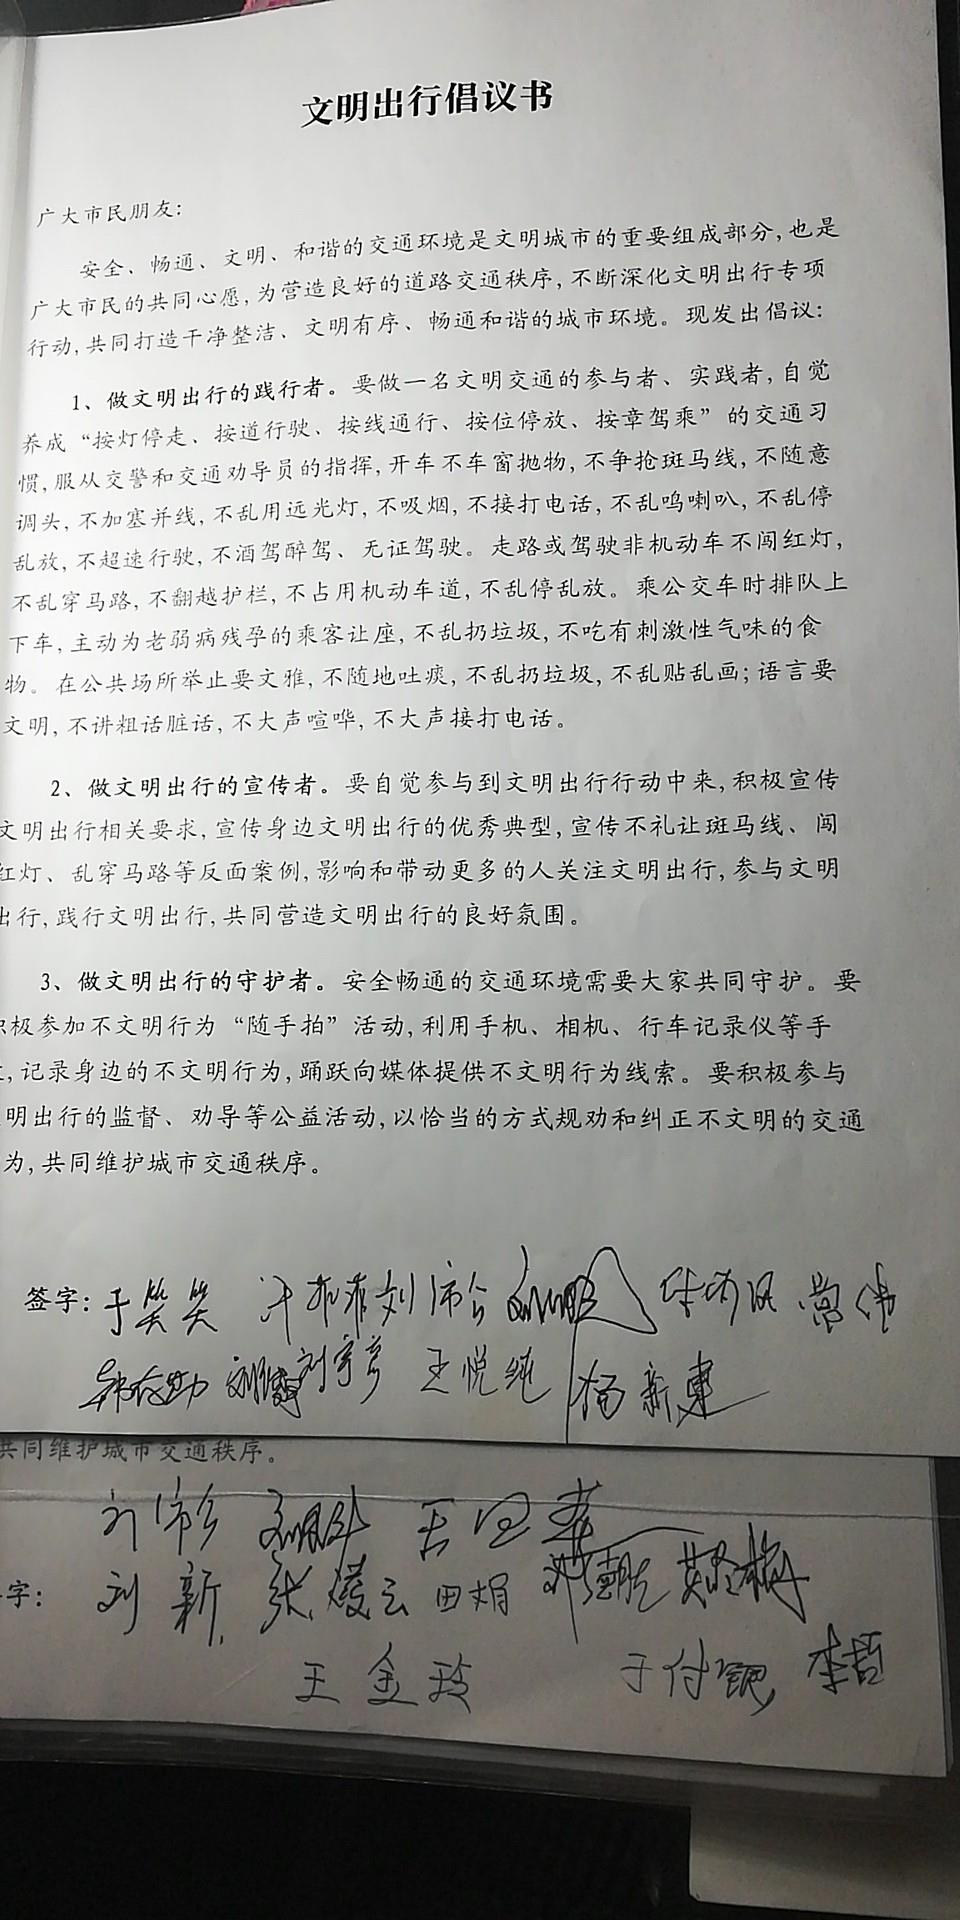 文明出行倡议书
广大市民朋友：
安全、畅通、文明、和谐的交通环境是文明城市的重要组成部分，也是
广大市民的共同心愿，为营造良好的道路交通秩序，不断深化文明出行专项
行动，共同打造干净整洁、文明有序、畅通和谐的城市环境。现发出倡议：
1、做文明出行的践行者。要做一名文明交通的参与者、实践者，自觉
养成“按灯停走、按道行驶、按线通行、按位停放、按章驾乘”的交通习
惯，服从交警和交通劝导员的指挥，开车不车窗抛物，不争抢斑马线，不随意
调头，不加塞并线，不乱用远光灯，不吸烟，不接打电话，不乱鸣喇叭，不乱停
乱放，不超速行驶，不酒驾醉驾、无证驾驶。走路或驾驶非机动车不闯红灯，
不乱穿马路，不翻越护栏，不占用机动车道，不乱停乱放。乘公交车时排队上
下车，主动为老弱病残孕的乘客让座，不乱扔垃圾，不吃有刺激性气味的食
物。在公共场所举止要文雅，不随地吐痰，不乱扔垃圾，不乱贴乱画；语言要
文明，不讲粗话脏话，不大声喧哗，不大声接打电话。
2、做文明出行的宣传者。要自觉参与到文明出行行动中来，积极宣传
文明出行相关要求，宣传身边文明出行的优秀典型，宣传不礼让斑马线、闯
红灯、乱穿马路等反面案例，影响和带动更多的人关注文明出行，参与文明
出行，践行文明出行，共同营造文明出行的良好氛围。
3、做文明出行的守护者。安全畅通的交通环境需要大家共同守护。要
积极参加不文明行为“随手拍”活动，利用手机、相机、行车记录仪等手
，记录身边的不文明行为，踊跃向媒体提供不文明行为线索。要积极参与
明出行的监督、劝导等公益活动，以恰当的方式规劝和纠正不文明的交通
为，共同维护城市交通秩序。
签字：于笑笑 常伟
刘宇亭 王悦纯 杨新建
共同维护城市交通秩序。
字：刘新 田娟
王金玲 李哲